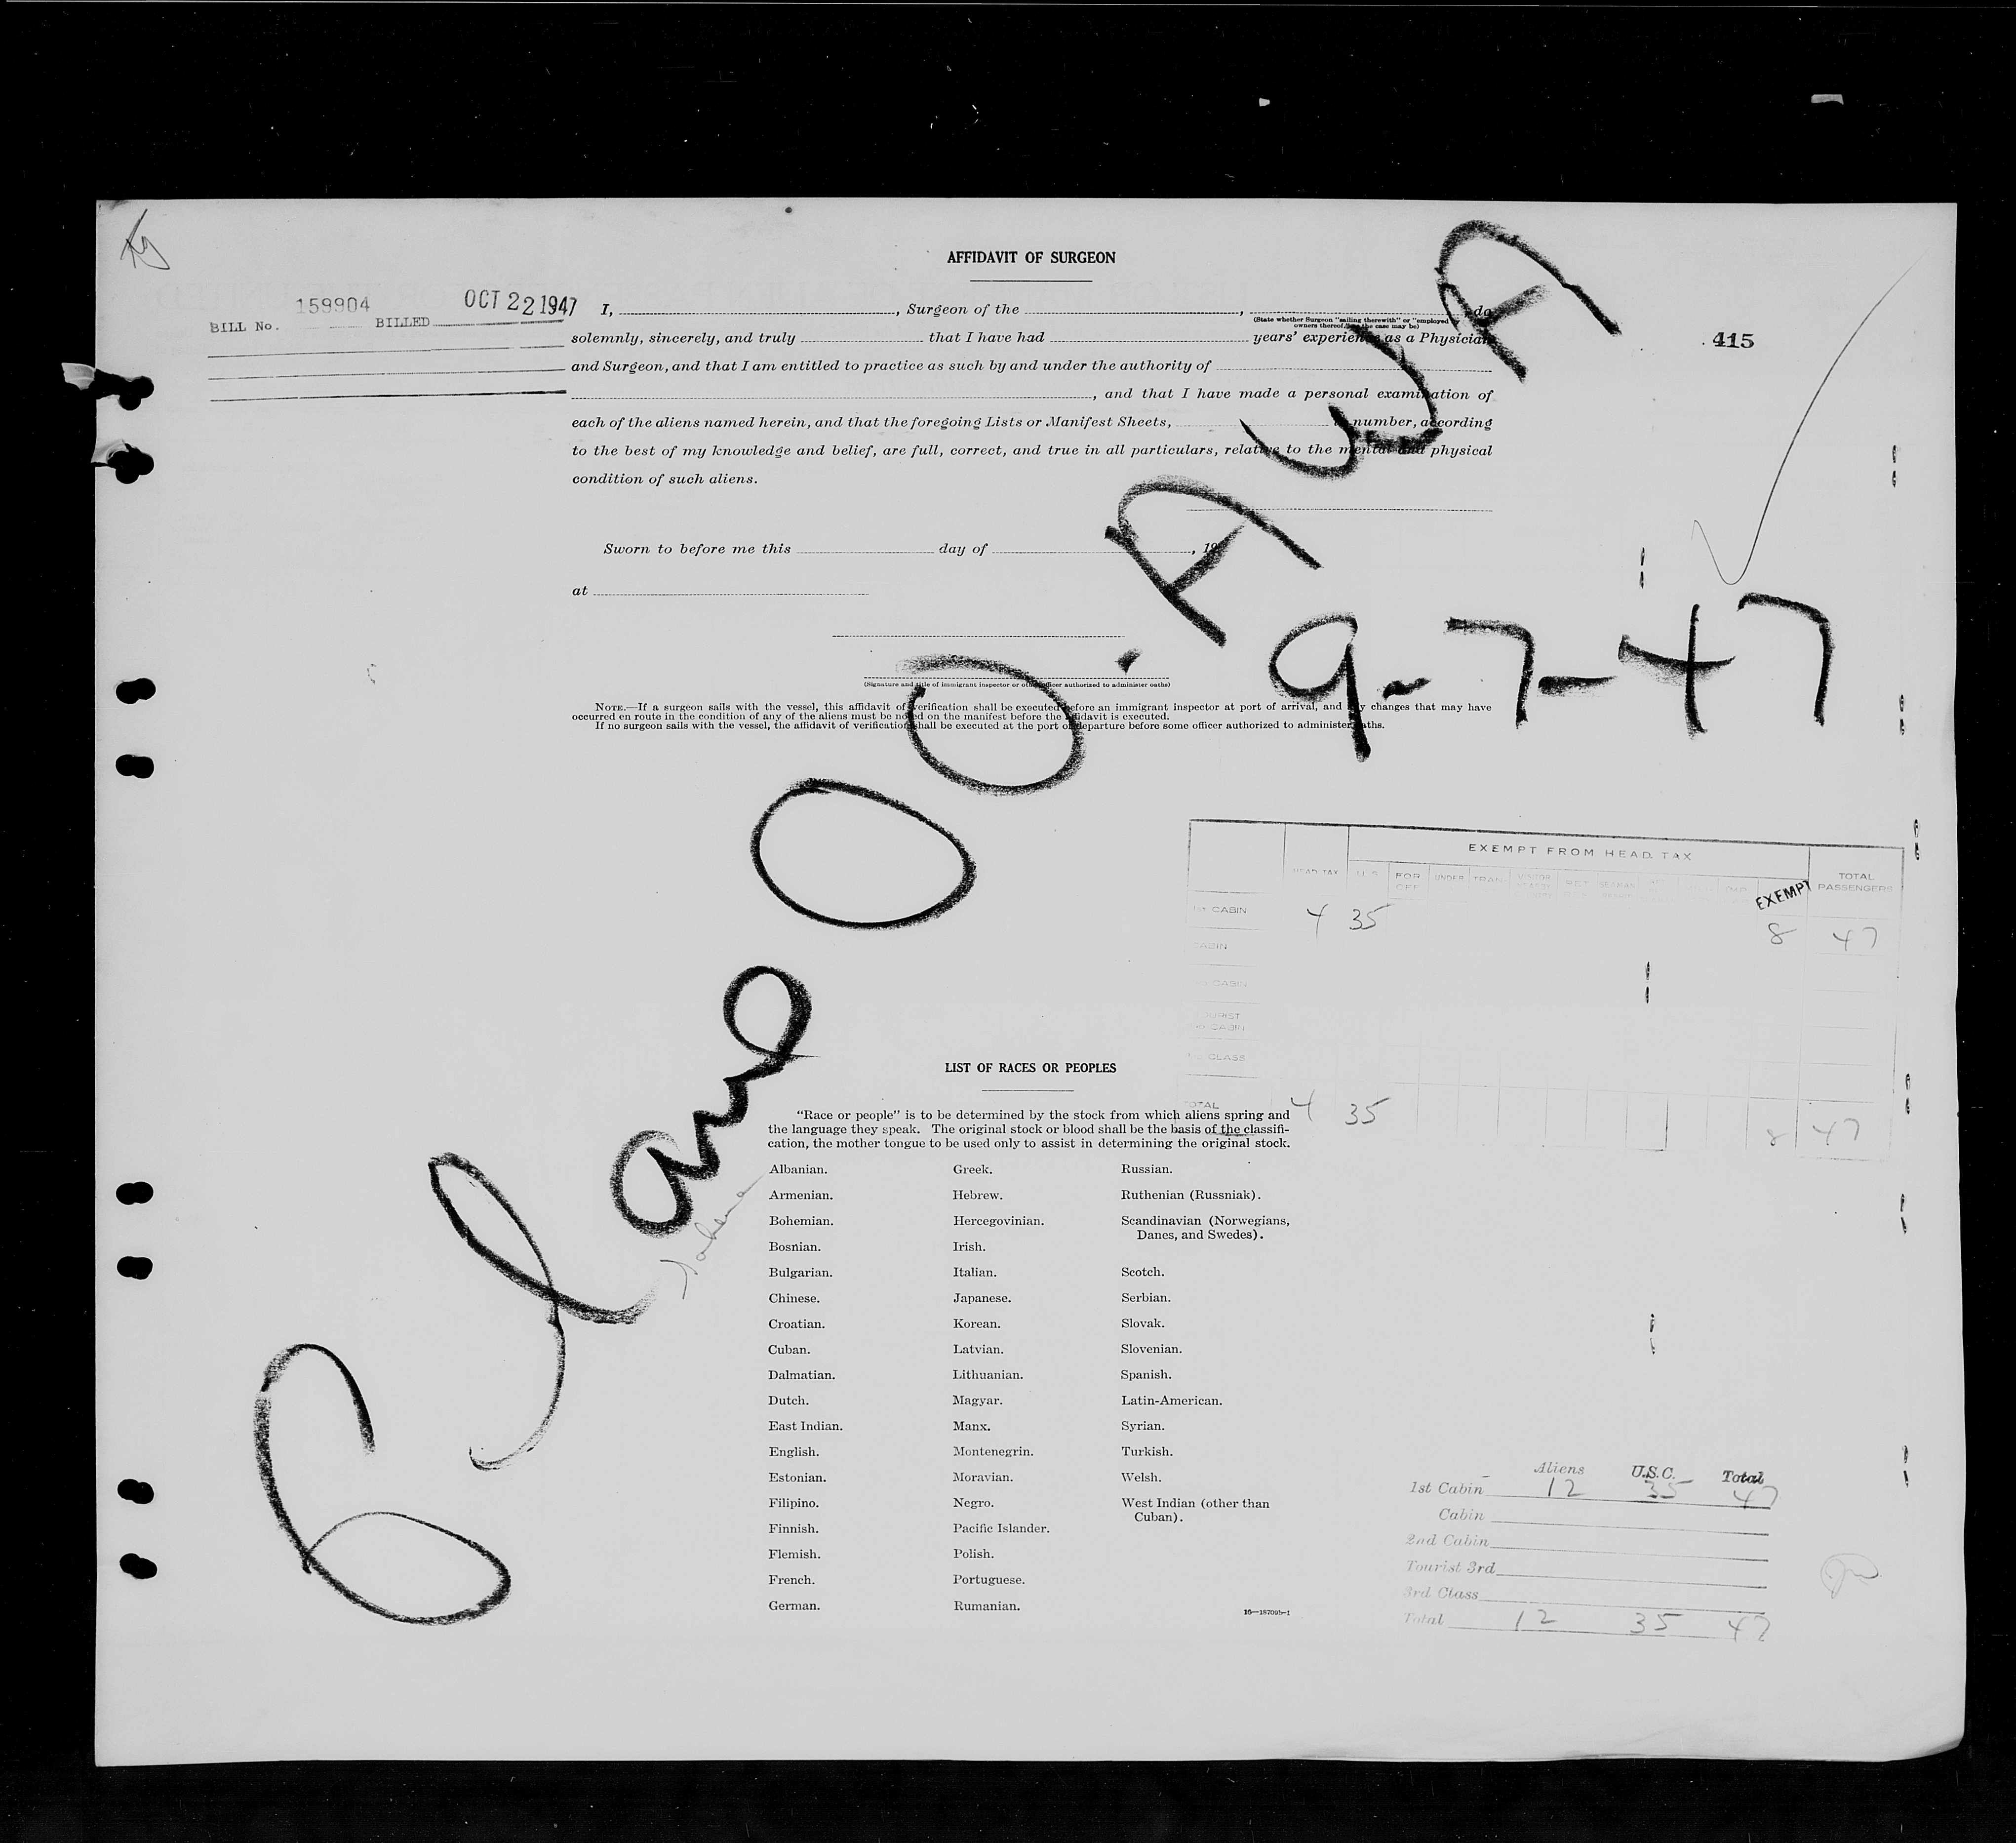 AFFIDAVIT OF SURGEON
BILL No. 159904 BILLED OCT 22 1947
415
I, , Surgeon of the , , do
(State whether Surgeon "sailing therewith" or "employed by owners thereof," as the case may be)
solemnly, sincerely, and truly that I have had years' experience as a Physician
and Surgeon, and that I am entitled to practice as such by and under the authority of
, and that I have made a personal examination of
each of the aliens named herein, and that the foregoing Lists or Manifest Sheets, in number, according
to the best of my knowledge and belief, are full, correct, and true in all particulars, relative to the mental and physical
condition of such aliens.
Sworn to before me this day of , 19
at
(Signature and title of immigrant inspector or other officer authorized to administer oaths)
NOTE.—If a surgeon sails with the vessel, this affidavit of verification shall be executed before an immigrant inspector at port of arrival, and any changes that may have
occurred en route in the condition of any of the aliens must be noted on the manifest before the affidavit is executed.
If no surgeon sails with the vessel, the affidavit of verification shall be executed at the port of departure before some officer authorized to administer oaths.
Plane OO-AWA
9-7-47
EXEMPT FROM HEAD TAX
HEAD TAX U.S. FOR OFF UNDER TRAN. RET EXEMPT TOTAL PASSENGERS
1st CABIN 4 35 8 47
CABIN
CABIN
TOURIST
CABIN
CLASS
TOTAL 4 35 8 47
LIST OF RACES OR PEOPLES
"Race or people" is to be determined by the stock from which aliens spring and
the language they speak. The original stock or blood shall be the basis of the classifi-
cation, the mother tongue to be used only to assist in determining the original stock.
Albanian. Greek. Russian.
Armenian. Hebrew. Ruthenian (Russniak).
Bohemian. Hercegovinian. Scandinavian (Norwegians,
Danes, and Swedes).
Bosnian. Irish.
Bulgarian. Italian. Scotch.
Chinese. Japanese. Serbian.
Croatian. Korean. Slovak.
Cuban. Latvian. Slovenian.
Dalmatian. Lithuanian. Spanish.
Dutch. Magyar. Latin-American.
East Indian. Manx. Syrian.
English. Montenegrin. Turkish.
Estonian. Moravian. Welsh.
Filipino. Negro. West Indian (other than
Cuban).
Finnish. Pacific Islander.
Flemish. Polish.
French. Portuguese.
German. Rumanian.
16—18709b-1
Aliens U.S.C. Total
1st Cabin 12 35 47
Cabin
2nd Cabin
Tourist 3rd
3rd Class
Total 12 35 47